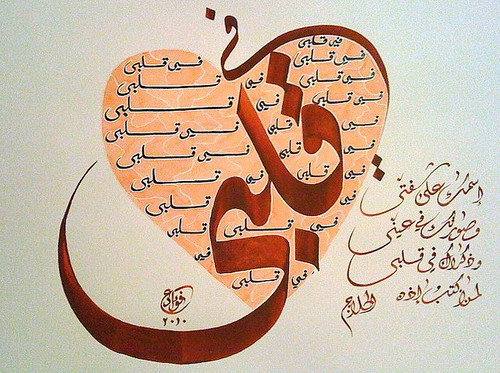 في قلبي
في قلبي
في قلبي
في قلبي
في قلبي
في قلبي
في قلبي
في قلبي
في قلبي
في قلبي
في قلبي
في قلبي
في قلبي
في قلبي
في قلبي
في قلبي
في قلبي
إسمك على شفتي
وصورتك في عيني
وذكراك في قلبي
لمن أكتب إذن
الحلاج
٢٠١٠